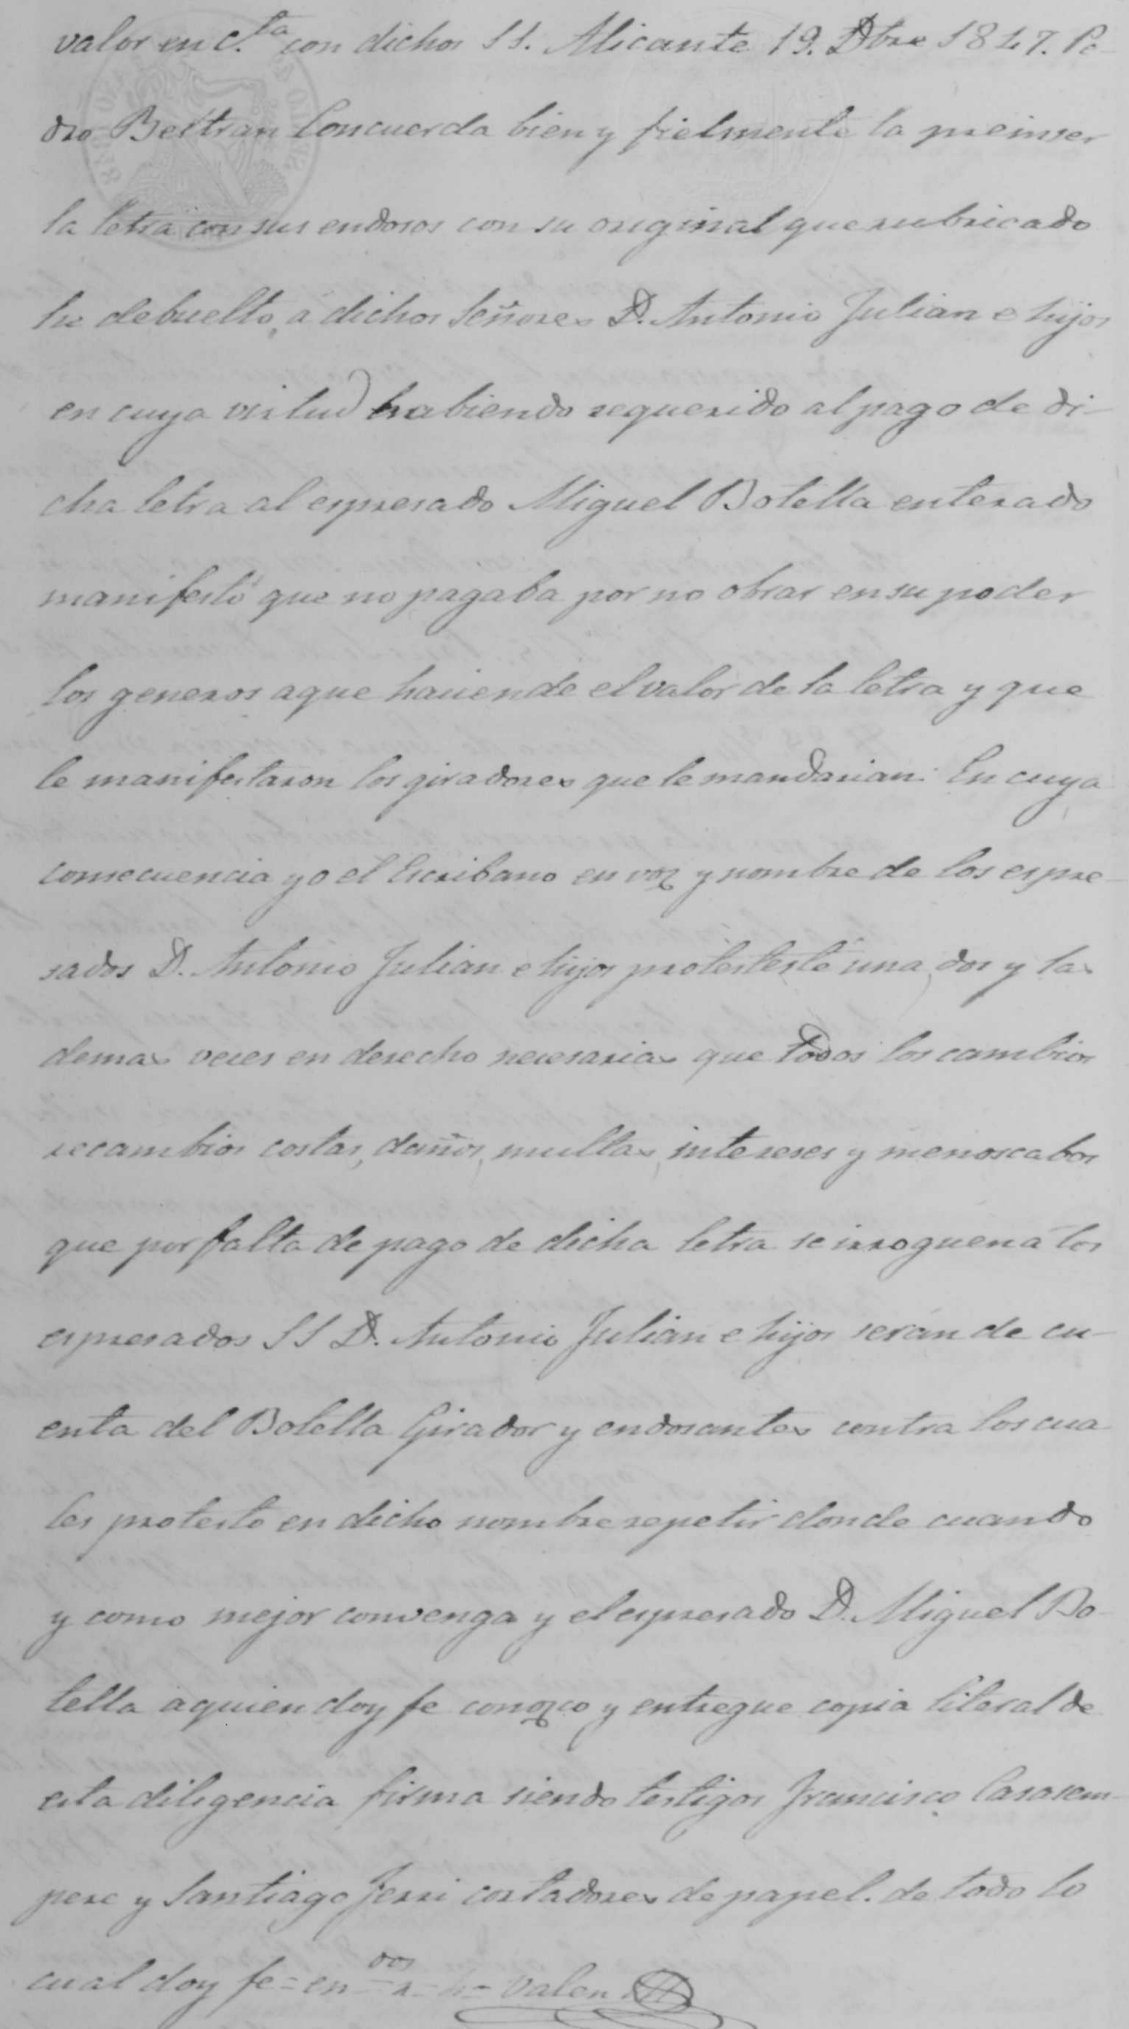 valor en c.ta con dichos SS. Alicante 19. Dbre 1847. Pe-
dro Beltran Concuerda bien y fielmente la preinser
ta letra con sus endosos con su original que rubricado
he debuelto, a dichos Señores D. Antonio Julian e hijos
en cuya virtud habiendo requerido al pago de di-
cha letra al espresado Miguel Botella enterado
manifestó que no pagaba por no obrar en su poder
los generos a que haciende el valor de la letra y que
le manifestaron los giradores que le mandarian. En cuya
consecuencia yo el Escribano en voz y nombre de los espre-
sados D. Antonio Julian e hijos protesté una, dos y las
demas veces en derecho necesarias que todos los cambios
recambios costas, daños, multas, intereses y menoscabos
que por falta de pago de dicha letra se irroguen a los
espresados SS D. Antonio Julian e hijos serán de cu-
enta del Botella Girador y endosantes contra los cua-
les protesto en dicho nombre repetir donde cuando
y como mejor convenga y el espresado D. Miguel Bo-
tella a quien doy fe conozco y entregue copia literal de
esta diligencia firma siendo testigos Francisco Casasem-
pere y Santiago Ferri cortadores de papel. de todo lo
cual doy fe = en dos = h = valen